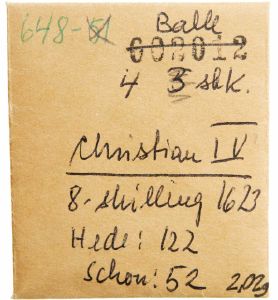 648-51
Balle
608012
4 3 shk.
Christian IV
8-skilling 1623
Hede: 122
Schou: 52 2,02g